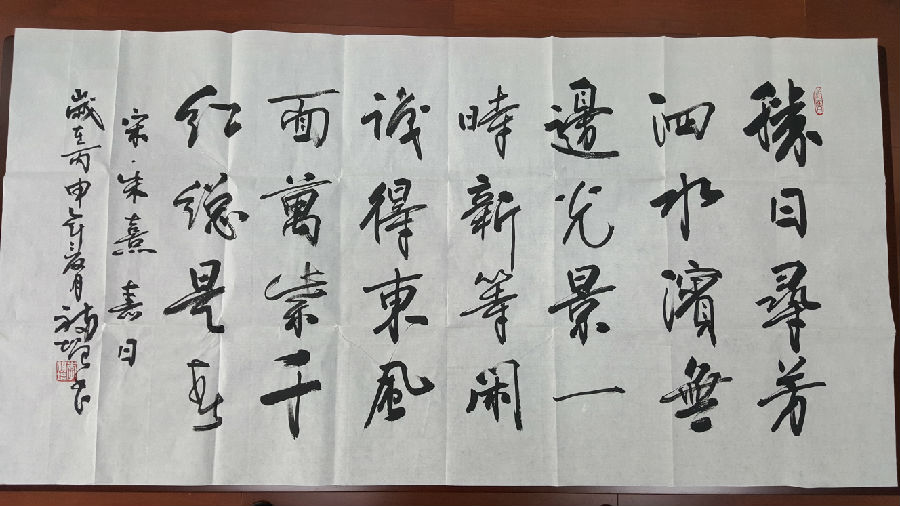 勝日尋芳
泗水濱無
邊光景一
時新等闲
識得東風
面萬紫千
紅總是春
宋·朱熹嘉日
歲在丙申年夏月